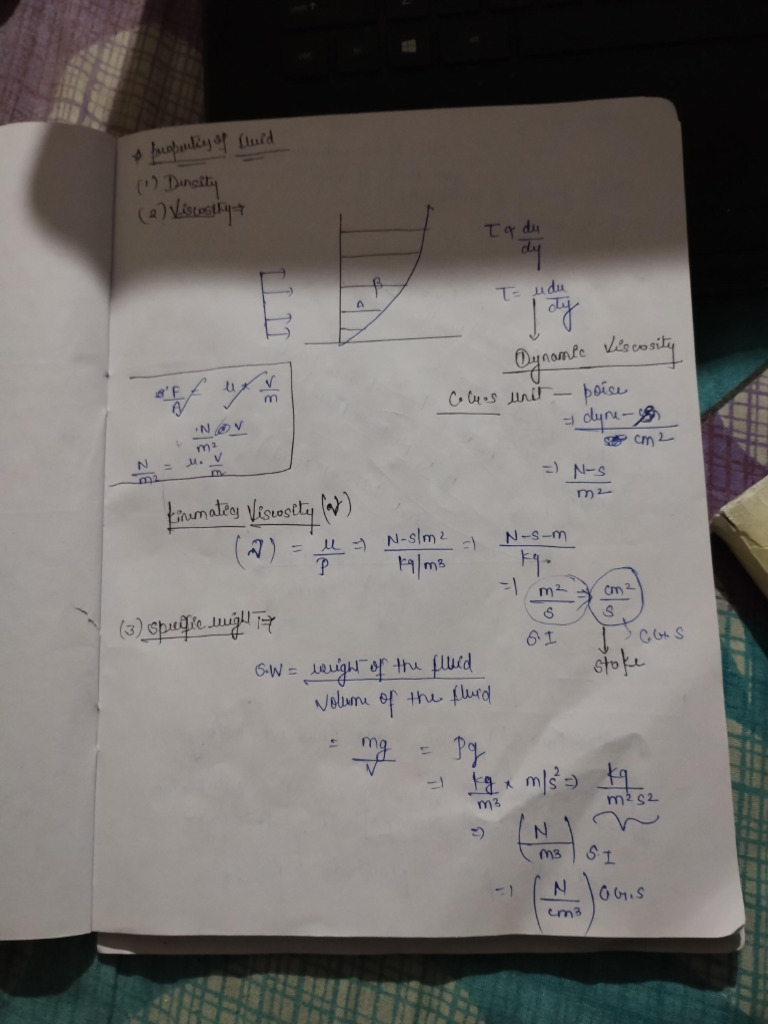 * Property of fluid
(1) Density
(2) Viscosity ⇒
τ ∝ du/dy
τ = μ du/dy
① Dynamic Viscosity
C.G.S unit — poise
⇒ dyne-s/cm2
⇒ N-s/m2
F/A = μ × V/m
N/m2 V
N/m2 = μ. V/m
Kinematics Viscosity (ν)
(ν) = μ/ρ ⇒ N-s/m2 / kg/m3 ⇒ N-s-m/kg
⇒ m2/s = cm2/s
S.I C.G.S
stoke
(3) Specific weight ⇒
S.W = weight of the fluid / Volume of the fluid
= mg/V = ρg
⇒ kg/m3 × m/s2 ⇒ kg/m2s2
⇒ (N/m3) S.I
⇒ (N/cm3) C.G.S